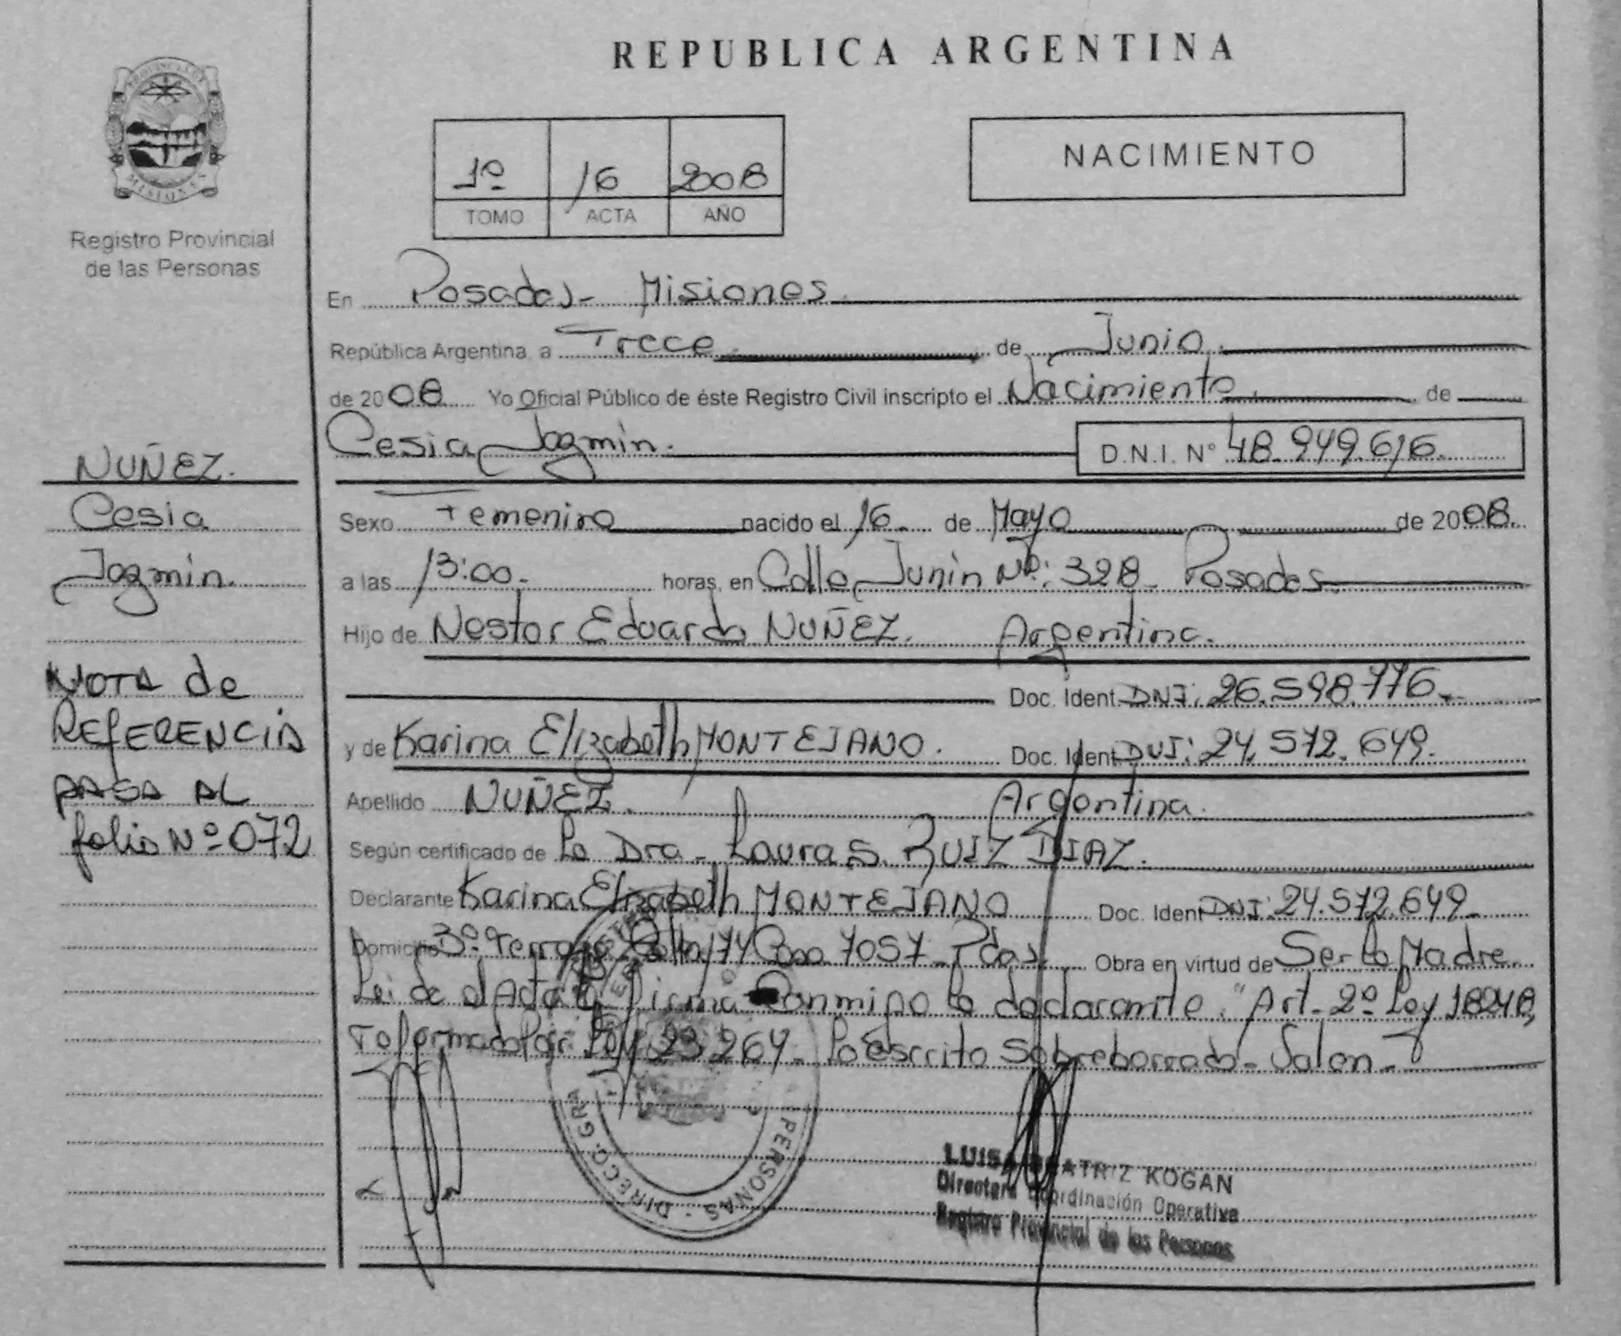 REPUBLICA ARGENTINA
PROVINCIA DE MISIONES
Registro Provincial
de las Personas
1º 16 2008
TOMO ACTA AÑO
NACIMIENTO
En Posadas - Misiones.
República Argentina, a Trece de Junio
de 2008 Yo Oficial Público de éste Registro Civil inscripto el Nacimiento de
Cesia Jazmin. D.N.I. Nº 48.949.616.
NUÑEZ.
Cesia
Jazmin.
Sexo Femenino nacido el 16 de Mayo de 2008.
a las 13:00.- horas, en Calle Junin Nº: 328 - Posadas
Hijo de Nestor Eduardo NUÑEZ. Argentina.
Doc. Ident. DNI: 26.598.776.-
y de Karina Elizabeth MONTEJANO. Doc. Ident. DNI: 24.572.649.
Apellido NUÑEZ. Argentina.
Según certificado de la Dra - Laura S. RUIZ DIAZ.
Declarante Karina Elizabeth MONTEJANO Doc. Ident DNI: 24.572.649.-
Domicilio 3º Terraza 174 Casa 7057 - Pdas. Obra en virtud de Ser la Madre.
Lei de el Acta la firma conmigo la declarante. "Art - 2º Ley 18248,
reformado por Ley 23.264 - lo escrito sobreborrado - Valen -
NOTA de
REFERENCIA
PASA AL
folio Nº 072
PERSONAS - DIRECC. GRAL
LUISA BEATRIZ KOGAN
Directora Coordinación Operativa
Registro Provincial de las Personas